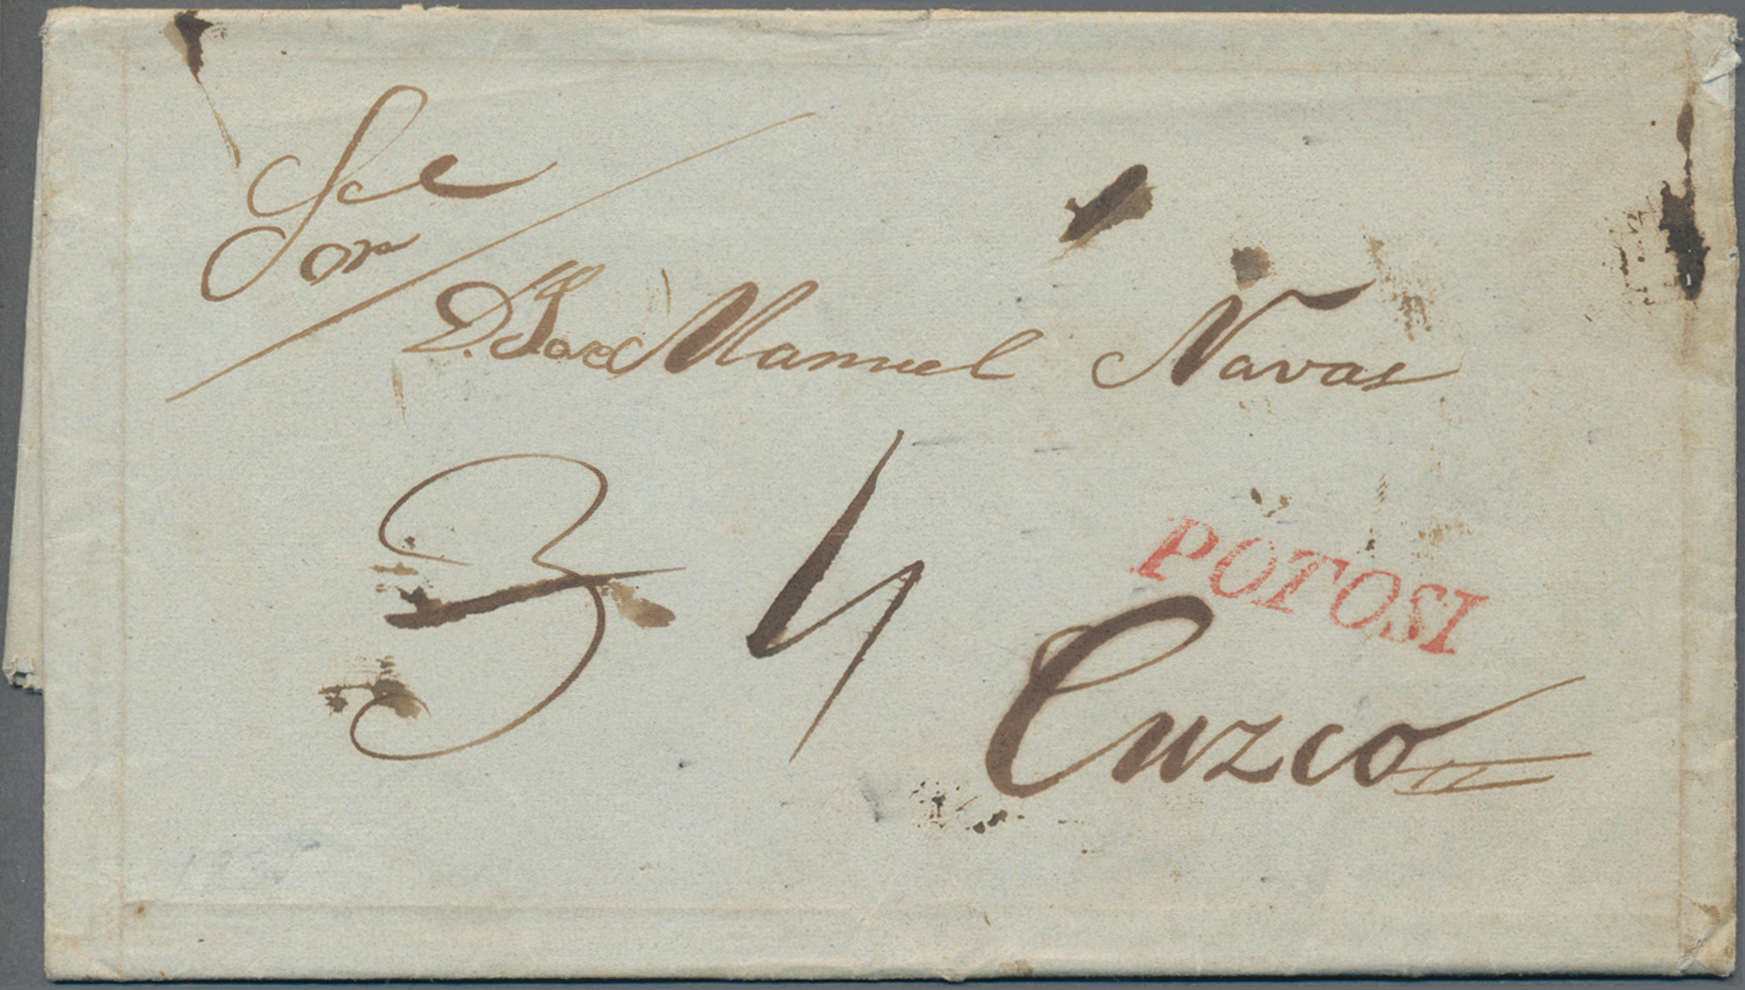 Sor
D. Jose Manuel Navas
3 4
POTOSI
Cuzco